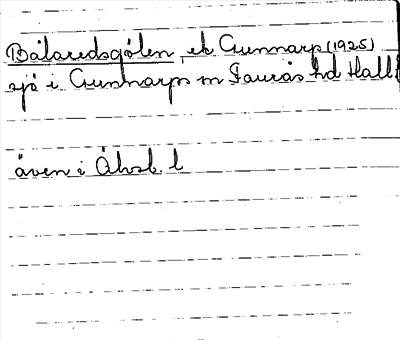 Bålaredsgölen, ek Gunnarp (1925)
sjö i Gunnarps sn Faurås hd Hall
även i Älvsb. l